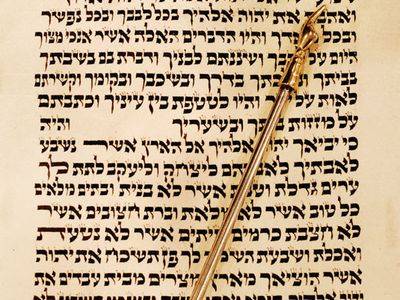 ואהבת את יהוה אלהיך בכל לבבך ובכל נפשך
ובכל והיו הדברים האלה אשר אנכי מצוך
היום על ושננתם לבניך ודברת בם בשבתך
בביתך בדרך ובשכבך ובקומך וקשרתם
לאות על והיו לטטפת בין עיניך וכתבתם
על מזוזת ובשעריך והיה
כי יביאך אלהיך אל הארץ אשר נשבע
לאבתיך ליצחק וליעקב לתת לך
ערים גדלת אשר לא בנית ובתים מלאים
כל טוב אשר לא מלאת וברת חצובים אשר
לא חצבת כרמים וזיתים אשר לא נטעת
ואכלת ושבעת השמר לך פן תשכח את יהוה
אשר הוציאך מצרים מבית עבדים את